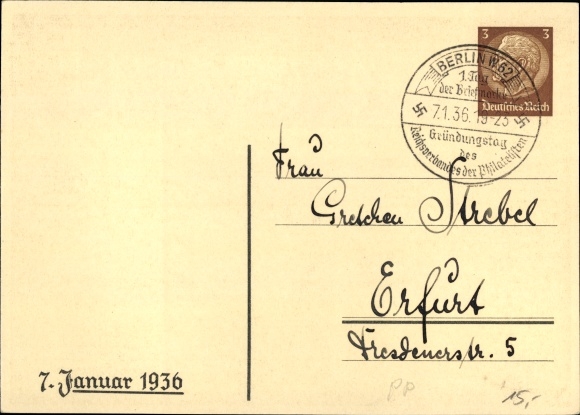 3 3
Deutsches Reich
BERLIN W 62
1. Tag
der Briefmarke
7.1.36.19-23
Gründungstag
des
Reichsverbandes der Philatelisten
Frau
Gretchen Strebel
Erfurt
Dresdenerstr. 5
7. Januar 1936
PP
15,-